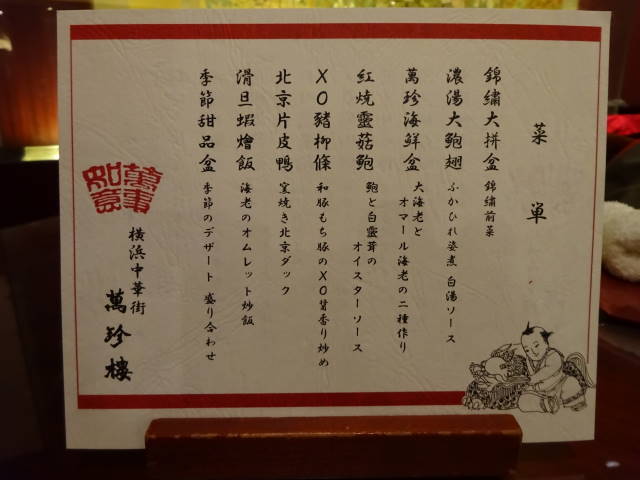 菜単
錦繡大拼盆 錦繍前菜
濃湯大鮑翅 ふかひれ姿煮 白湯ソース
萬珍海鮮盆 大海老と
オマール海老の二種作り
紅焼靈菇鮑 鮑と白霊茸の
オイスターソース
XO豬柳條 和豚もち豚のXO醤香り炒め
北京片皮鴨 窯焼き北京ダック
滑旦蝦燴飯 海老のオムレット炒飯
季節甜品盆 季節のデザート 盛り合わせ
萬事如意
横浜中華街
萬珍樓